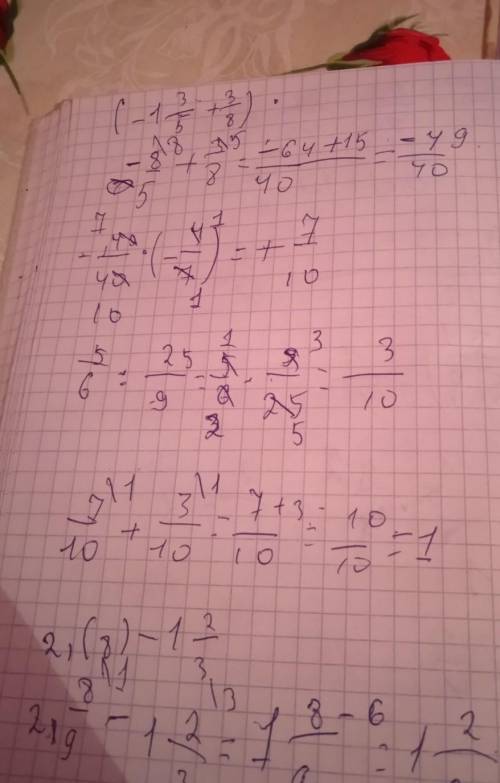 (-1 3/5 + 3/8) ·
-8/5 \8 + 3/8 \5 = (-64+15)/40 = -49/40
-49/40 · (-4/7) = + 7/10
5/6 : 25/9 = 5/6 · 9/25 = 3/10
7/10 \1 + 3/10 \1 = (7+3)/10 = 10/10 = 1
2,(8) - 1 2/3
2, 8/9 \1 - 1 2/3 \3 = 1 (8-6)/9 = 1 2